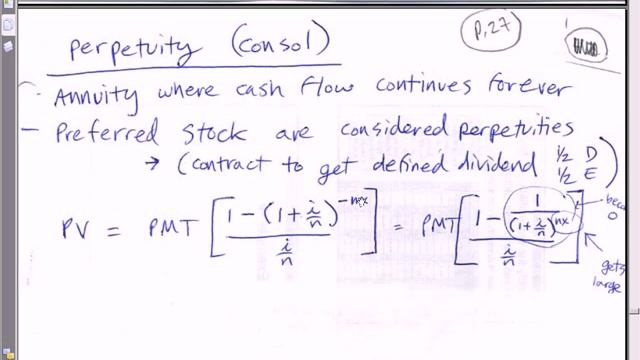 perpetuity (consol)
p.27
Annuity where cash flow continues forever
— Preferred stock are considered perpetuities
→ (contract to get defined dividend 1/2 D
1/2 E)
PV = PMT [ (1 - (1 + i/n)^-nx) / (i/n) ] = PMT [ (1 - 1/(1 + i/n)^nx) / (i/n) ]
0
gets
large